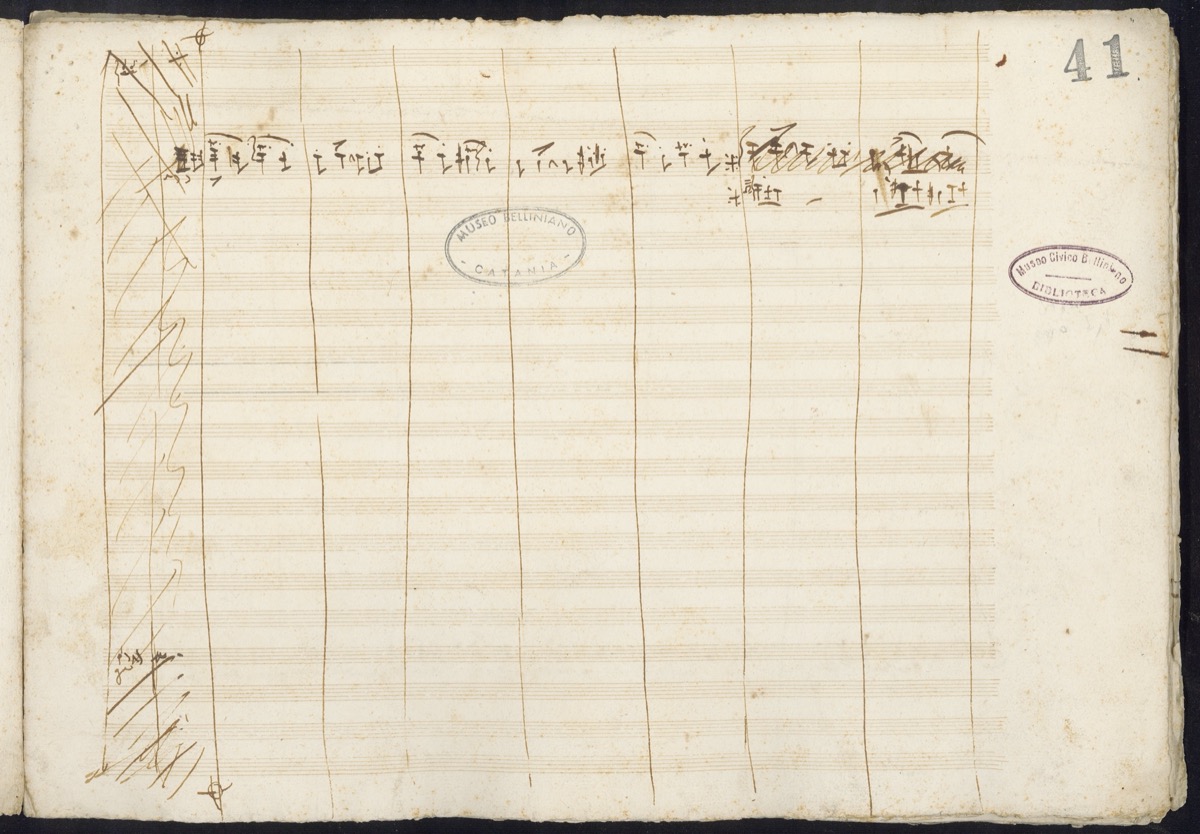 41
MUSEO BELLINIANO
- CATANIA -
Museo Civico Belliniano
BIBLIOTECA